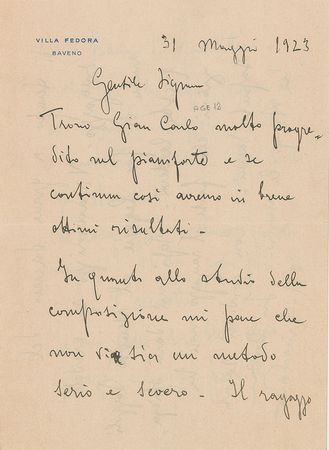 VILLA FEDORA
BAVENO
31 Maggio 1923
Gentile Signora
AGE 12
Trovo Gian Carlo molto progre=
dito sul pianoforte e se
continua così avremo in breve
ottimi risultati -
In quanto allo studio della
composizione mi pare che
non vi sia un metodo
serio e severo - Il ragazzo